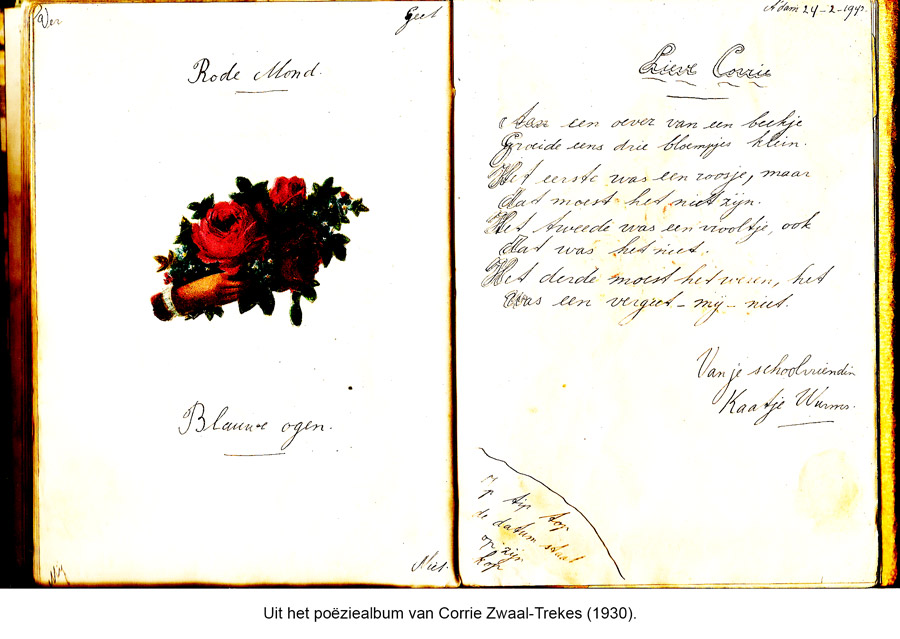 Ver Geet
Rode Mond.
Blauwe ogen.
Mij Niet.
A'dam 24-2-194
Lieve Corrie
Aan een oever van een beekje
Groeide eens drie bloempjes klein.
Het eerste was een roosje, maar
dat moest het niet zijn.
Het tweede was een viooltje, ook
dat was het niet.
Het derde moest het wezen, het
was een vergeet-mij-niet.
Van je schoolvriendin
Kaatje Wurms.
tip top
de datum staat
op zijn
kop
Uit het poëziealbum van Corrie Zwaal-Trekes (1930).